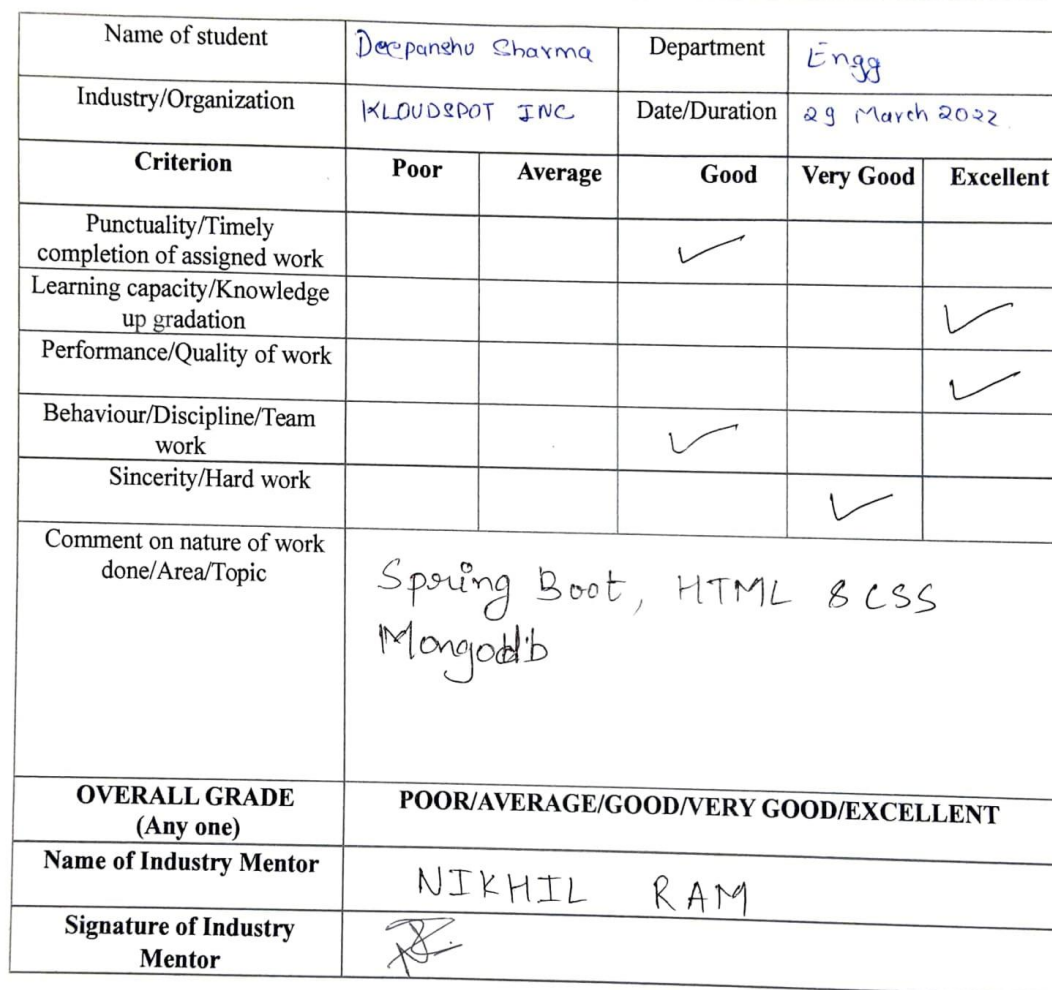 Name of student Deepanshu Sharma Department Engg
Industry/Organization KLOUDSPOT INC Date/Duration 29 March 2022.
Criterion Poor Average Good Very Good Excellent
Punctuality/Timely
completion of assigned work
Learning capacity/Knowledge
up gradation
Performance/Quality of work
Behaviour/Discipline/Team
work
Sincerity/Hard work
Comment on nature of work
done/Area/Topic
Spring Boot, HTML & CSS
Mongoddb
OVERALL GRADE
(Any one)
POOR/AVERAGE/GOOD/VERY GOOD/EXCELLENT
Name of Industry Mentor NIKHIL RAM
Signature of Industry
Mentor